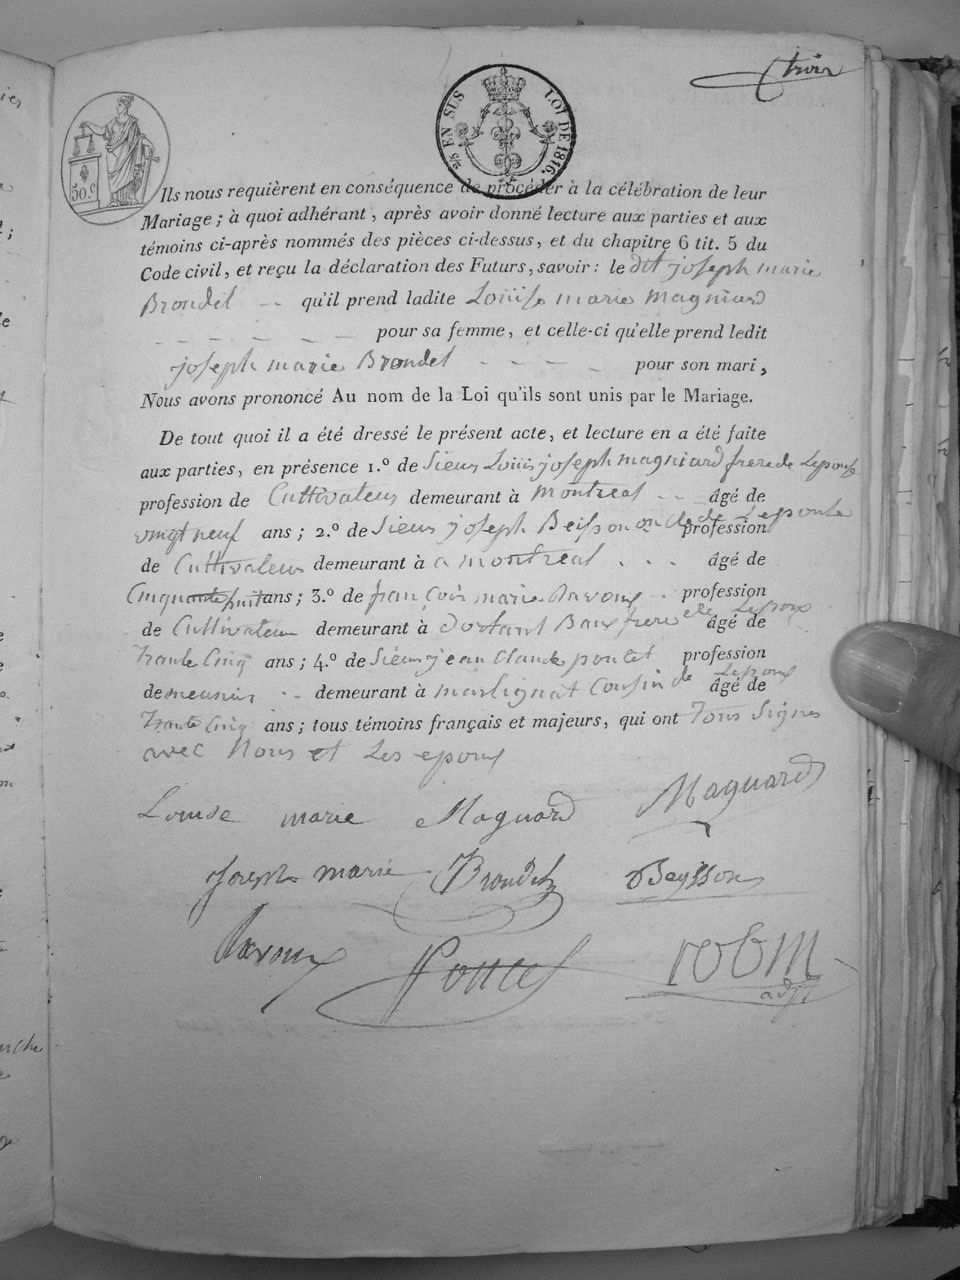 trois
50.c
2/5 EN SUS LOI DE 1816.
Ils nous requièrent en conséquence de procéder à la célébration de leur
Mariage; à quoi adhérant, après avoir donné lecture aux parties et aux
témoins ci-après nommés des pièces ci-dessus, et du chapitre 6 tit. 5 du
Code civil, et reçu la déclaration des Futurs, savoir: le dit joseph marie
Brondel -- qu'il prend ladite Louise marie magniard
- - - - - - pour sa femme, et celle-ci qu'elle prend ledit
joseph marie Brondel - - - - pour son mari,
Nous avons prononcé Au nom de la Loi qu'ils sont unis par le Mariage.
De tout quoi il a été dressé le présent acte, et lecture en a été faite
aux parties, en présence 1.º de Sieur Louis joseph magniard frere de Lepouse
profession de Cultivateur demeurant à montreal -- âgé de
vingt neuf ans; 2.º de Sieur joseph Beisson oncle de Lepouse profession
de Cultivateur demeurant à a montreal . . . âgé de
Cinquante huit ans; 3.º de françois marie Ravoux . . profession
de Cultivateur demeurant à dortant Baux frere de Lepoux âgé de
Trante Cinq ans; 4.º de Sieur jean Claude pontet profession
de meunier -- demeurant à martignat Cousin de Lepoux âgé de
Trante Cinq ans; tous témoins français et majeurs, qui ont Tous Signes
avec Nous et Les epoux
Louise marie Magnard Magnard
joseph marie Brondel Beysson
Ravoux Poncet
adjt